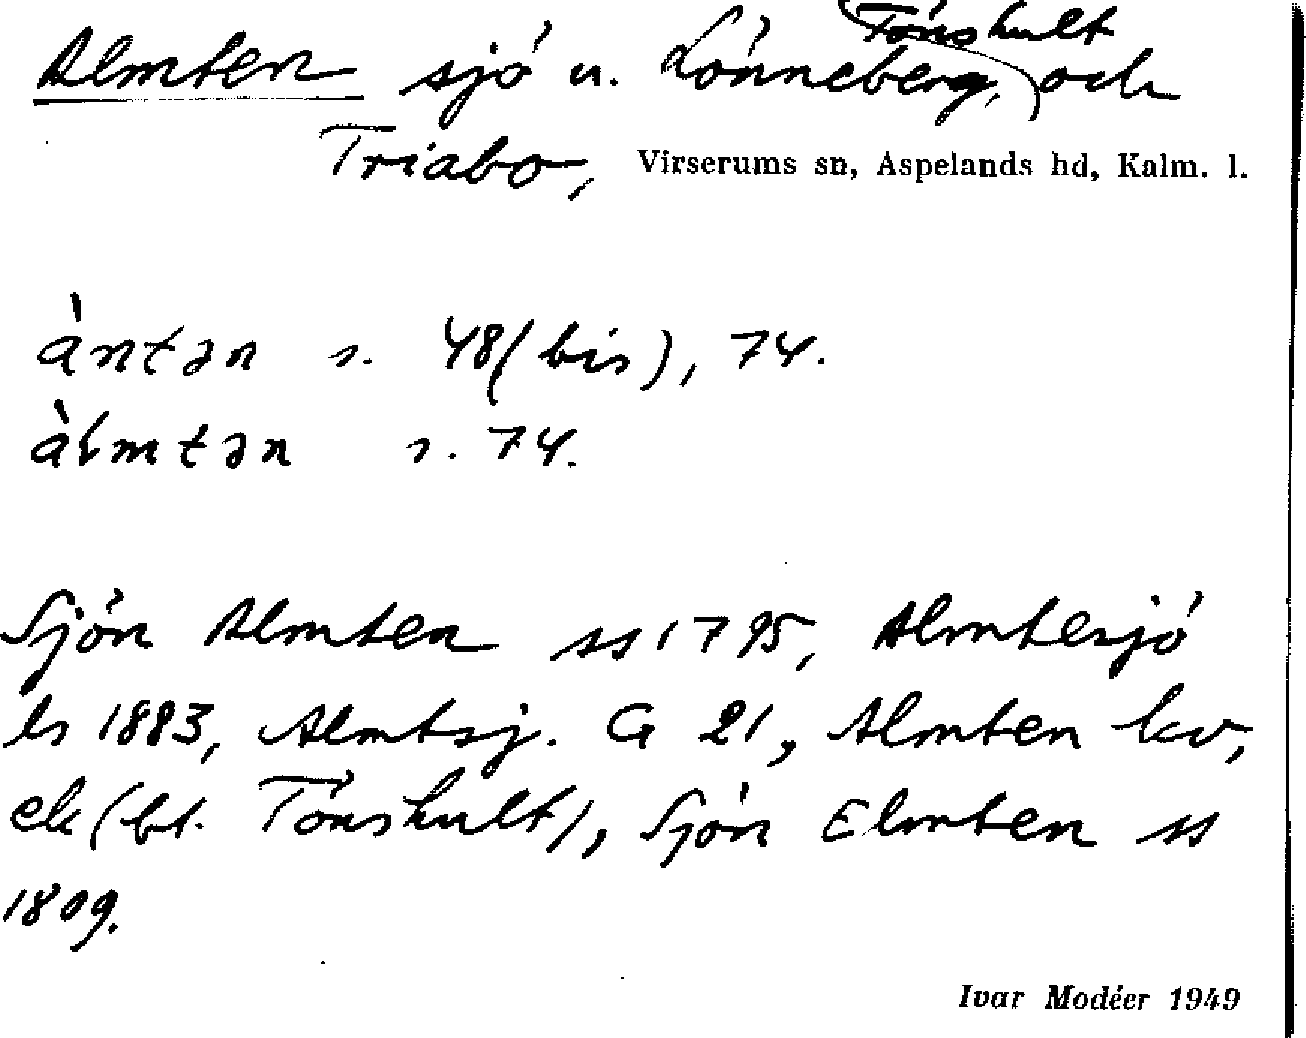 Almten sjö u. Lönneberg, Tönshult och
Triabo, Virserums sn, Aspelands hd, Kalm. l.
àntən s. 48 (bis), 74.
àlmtən s. 74.
Sjön Almten ss 1795, Almtesjö
ls 1883, Almtsj. G 21, Almten kv,
ek (bt. Tönshult), Sjön Elmten ss
1809.
Ivar Modéer 1949